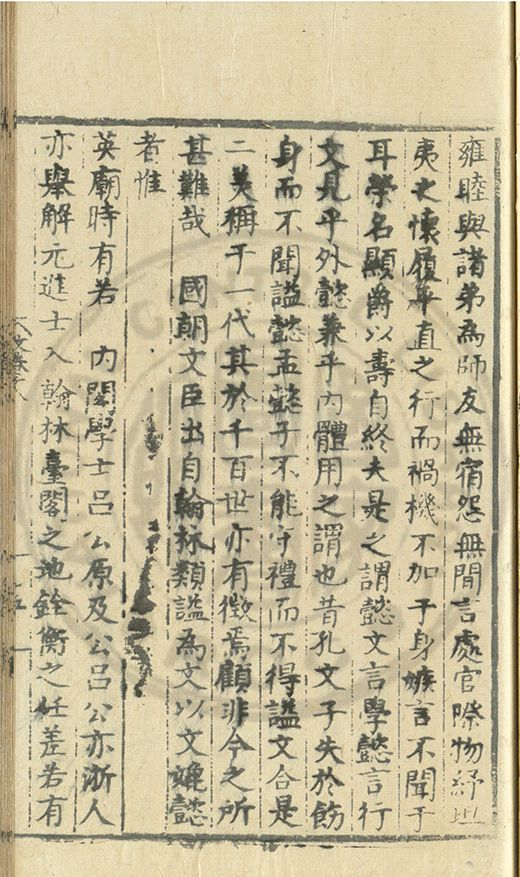 雍睦與諸弟為師友無宿怨無間言處官際物紓坦
夷之懷履平直之行而禍機不加于身嫉言不聞于
耳榮名顯爵以壽自終夫是之謂懿文言學懿言行
文見乎外懿兼乎內體用之謂也昔孔文子失於飭
身而不聞謚懿孟懿子不能守禮而不得謚文合是
二美稱于一代其於千百世亦有徵焉顧非今之所
甚難哉　國朝文臣出自翰林類謚為文以文媲懿
者惟
英廟時有若　內閣學士呂公原及公呂公亦浙人
亦舉解元進士入翰林臺閣之地銓衡之任差若有